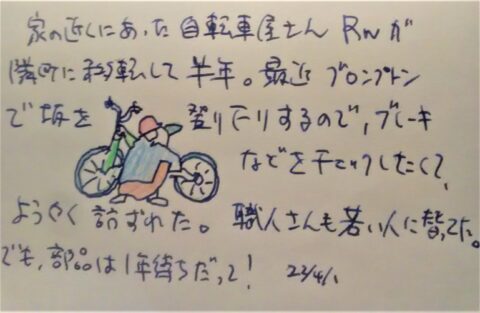 家の近くにあった自転車屋さん RWが
隣町に移転して半年。最近ブロンプトン
で坂を登り下りするので、ブレーキ
などを チェックしたくて、
ようやく訪ずれた。職人さんも若い人に替ってた。
でも、部品は1年待ちだって! 23/4/1